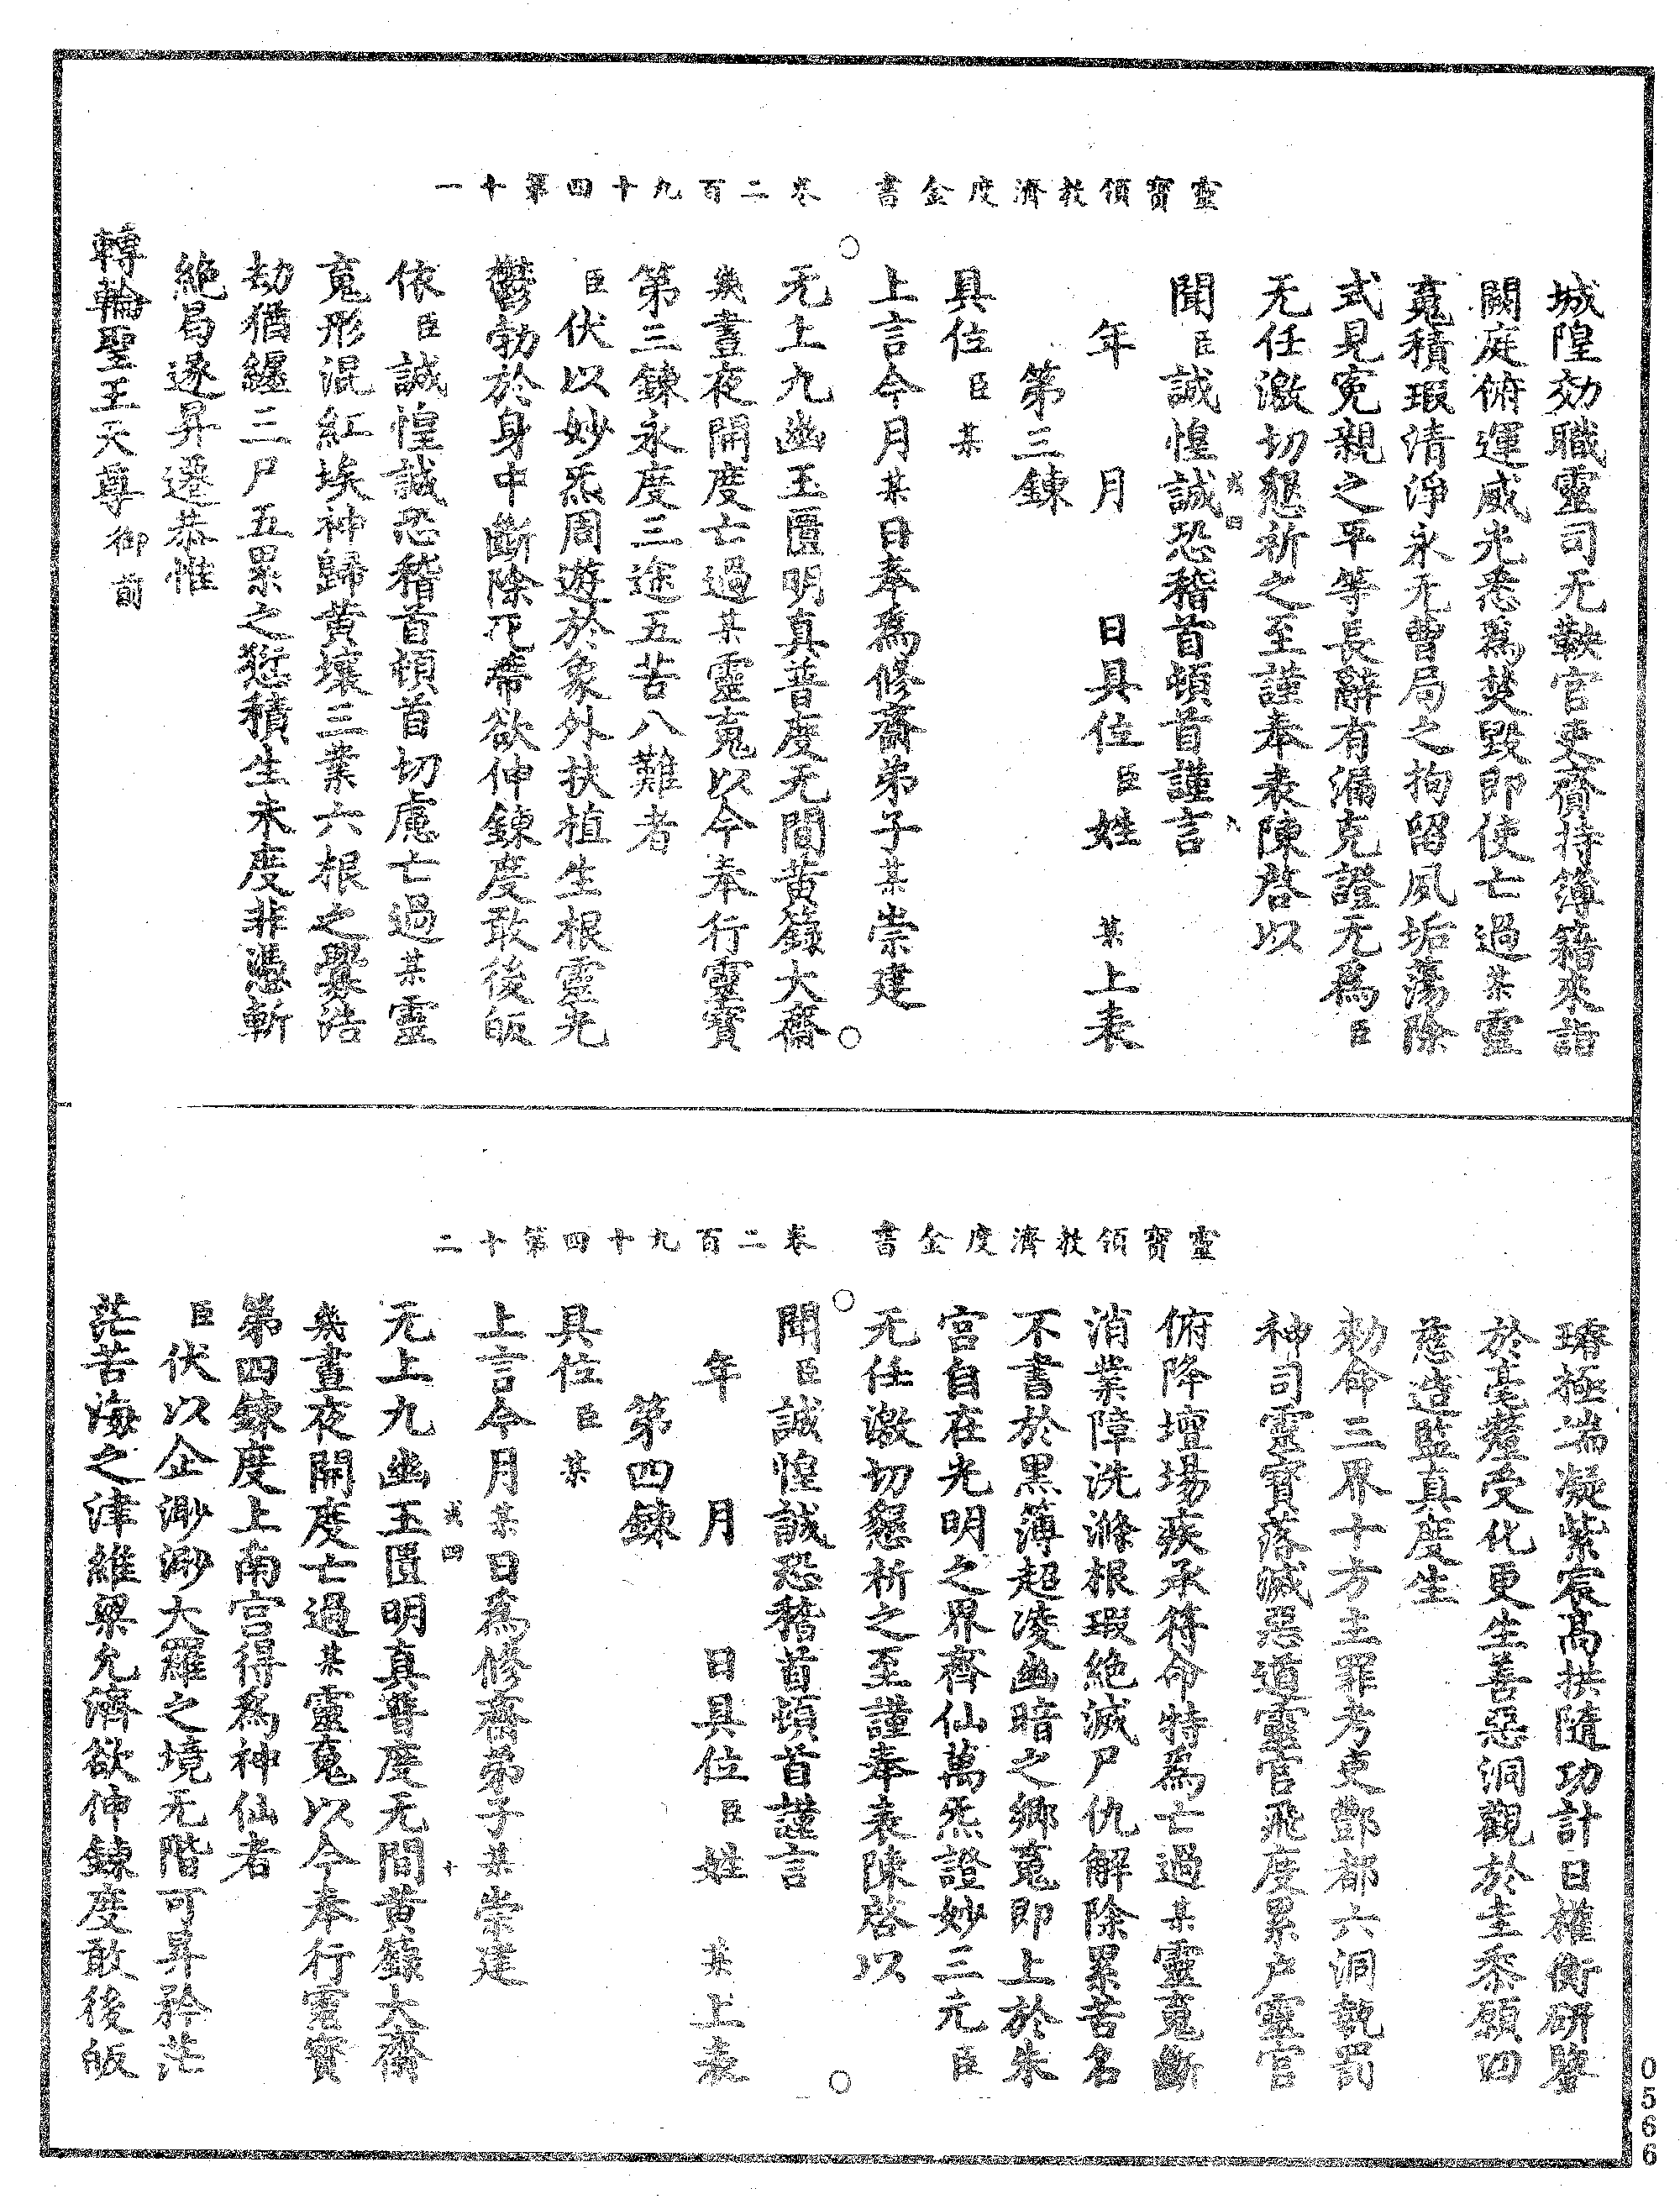 靈寶領教濟度金書　卷二百九十四第十一
城隍効職靈司无鞅官吏齎持簿籍來詣
闕庭俯運威光悉為焚毀即使亡過某靈
䰟積瑕清淨永无曹局之拘留夙垢蕩除
式見寃親之平等長辭有漏克證无為臣
无任激切懇祈之至謹奉表陳啓以
聞臣誠惶誠恐稽首頓首謹言
年　月　日具位臣姓　某上表
第三鍊
具位臣某
上言今月某日奉為修齋弟子某崇建
无上九幽玉匱明真普度无間黃籙大齋
幾晝夜開度亡過某靈䰟以今奉行靈寶
第三鍊永度三途五苦八難者
臣伏以妙炁周遊於象外扶植生根靈光
鬱勃於身中斷除死蔕欲伸鍊度敢後皈
依臣誠惶誠恐稽首頓首切慮亡過某靈
䰟形混紅埃神歸黃壤三業六根之釁浩
劫猶纏三尸五累之愆積生未度非憑斬
絕曷遂昇遷恭惟
轉輪聖王天尊御前
靈寶領教濟度金書　卷二百九十四第十二
璿極端凝紫宸高拱隨功計日權衡研磬
於毫釐受化更生善惡洞觀於圭黍願回
慈造監真度生
勑命三界十方主罪考吏酆都六洞執罰
神司靈寶落滅惡道靈官飛度累户靈官
俯降壇場疾承符命特為亡過某靈䰟斷
消業障洗滌根瑕絕滅尸仇解除累苦名
不書於黑簿超凌幽暗之鄉䰟即上於朱
宫自在光明之界齊仙萬炁證妙三元臣
无任激切懇祈之至謹奉表陳啓以
聞臣誠惶誠恐稽首頓首謹言
年　月　日具位臣姓　某上表
第四鍊
具位臣某
上言今月某日為修齋弟子某崇建
无上九幽玉匱明真普度无間黃籙大齋
幾晝夜開度亡過某靈䰟以今奉行靈寶
第四鍊度上南宫得為神仙者
臣伏以企渺渺大羅之境无階可昇矜茫
茫苦海之津維梁允濟欲伸鍊度敢後皈
0566